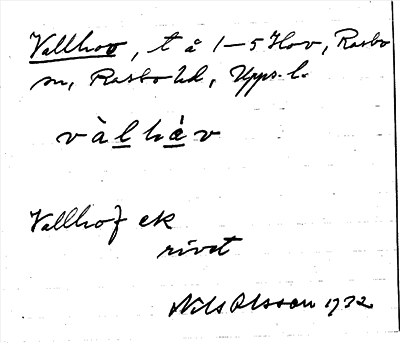 Vallhov, t å 1-5 Hov, Rasbo
sn, Rasbo hd, Upps. l.
vàlhȧv
Vallhof ek
rivet
Nils Olsson 1932